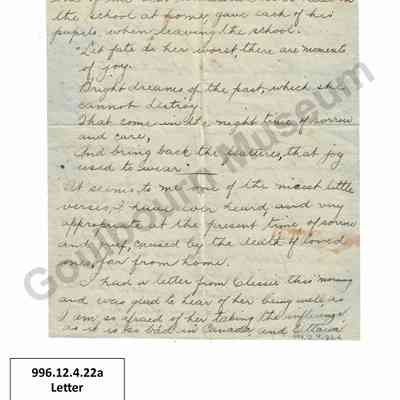 the school at home, gave each of his
pupils, when leaving the school.
"Let fate do her worst, there are moments
of joy.
Bright dreams of the past, which she
cannot destroy.
That come in the night time of sorrow
and care,
And bring back the features, that joy
used to wear"
It seems, to me one of the nicest little
verses, I have ever heard, and very
appropriate at the present time of sorrow
and grief, caused by the death of loved
ones, far from home.
I had a letter from this morning
and was glad to hear of her being well, as
I am so afraid of her taking the influenza,
as it is so bad in Canada, and Ottawa
Goulbourn Museum
996.12.4.22a
Letter